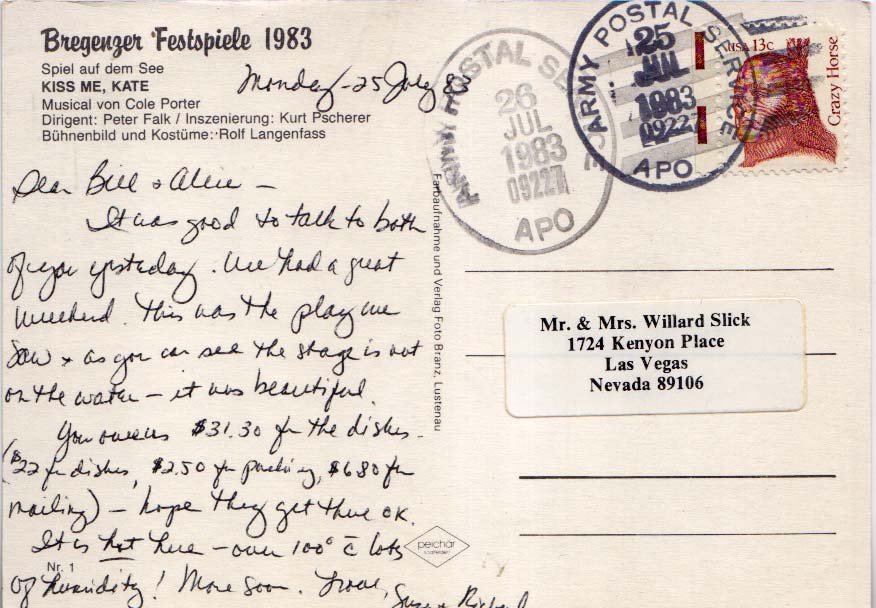 Bregenzer Festspiele 1983
Spiel auf dem See
KISS ME, KATE
Musical von Cole Porter
Dirigent: Peter Falk / Inszenierung: Kurt Pscherer
Bühnenbild und Kostüme: Rolf Langenfass
Monday - 25 July 83
Dear Bill + Alice -
It was good to talk to both
of you yesterday. We had a great
weekend. This was the play we
saw + as you can see the stage is out
on the water - it was beautiful.
You owe us $31.30 for the dishes.
($22 for dishes, $2.50 for packing, $6.80 for
mailing) - hope they get there ok.
It is hot here - over 100° c̄ lots
of humidity! More soon. Love,
Susan + Richard
Nr. 1
Farbaufnahme und Verlag Foto Branz, Lustenau
peichär
ARMY POSTAL SERVICE
26
JUL
1983
09227
APO
ARMY POSTAL SERVICE
25
JUL
1983
09227
APO
USA 13c
Crazy Horse
Mr. & Mrs. Willard Slick
1724 Kenyon Place
Las Vegas
Nevada 89106